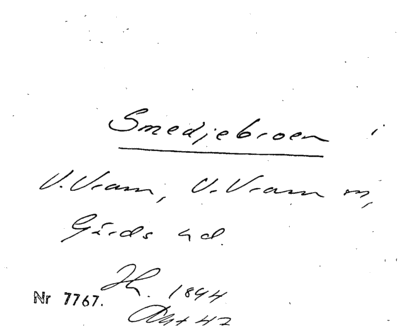 Smedjebroen i
V. Vram, V. Vram sn,
Gärds hd.
Nr 7767.
1844
Akt 47